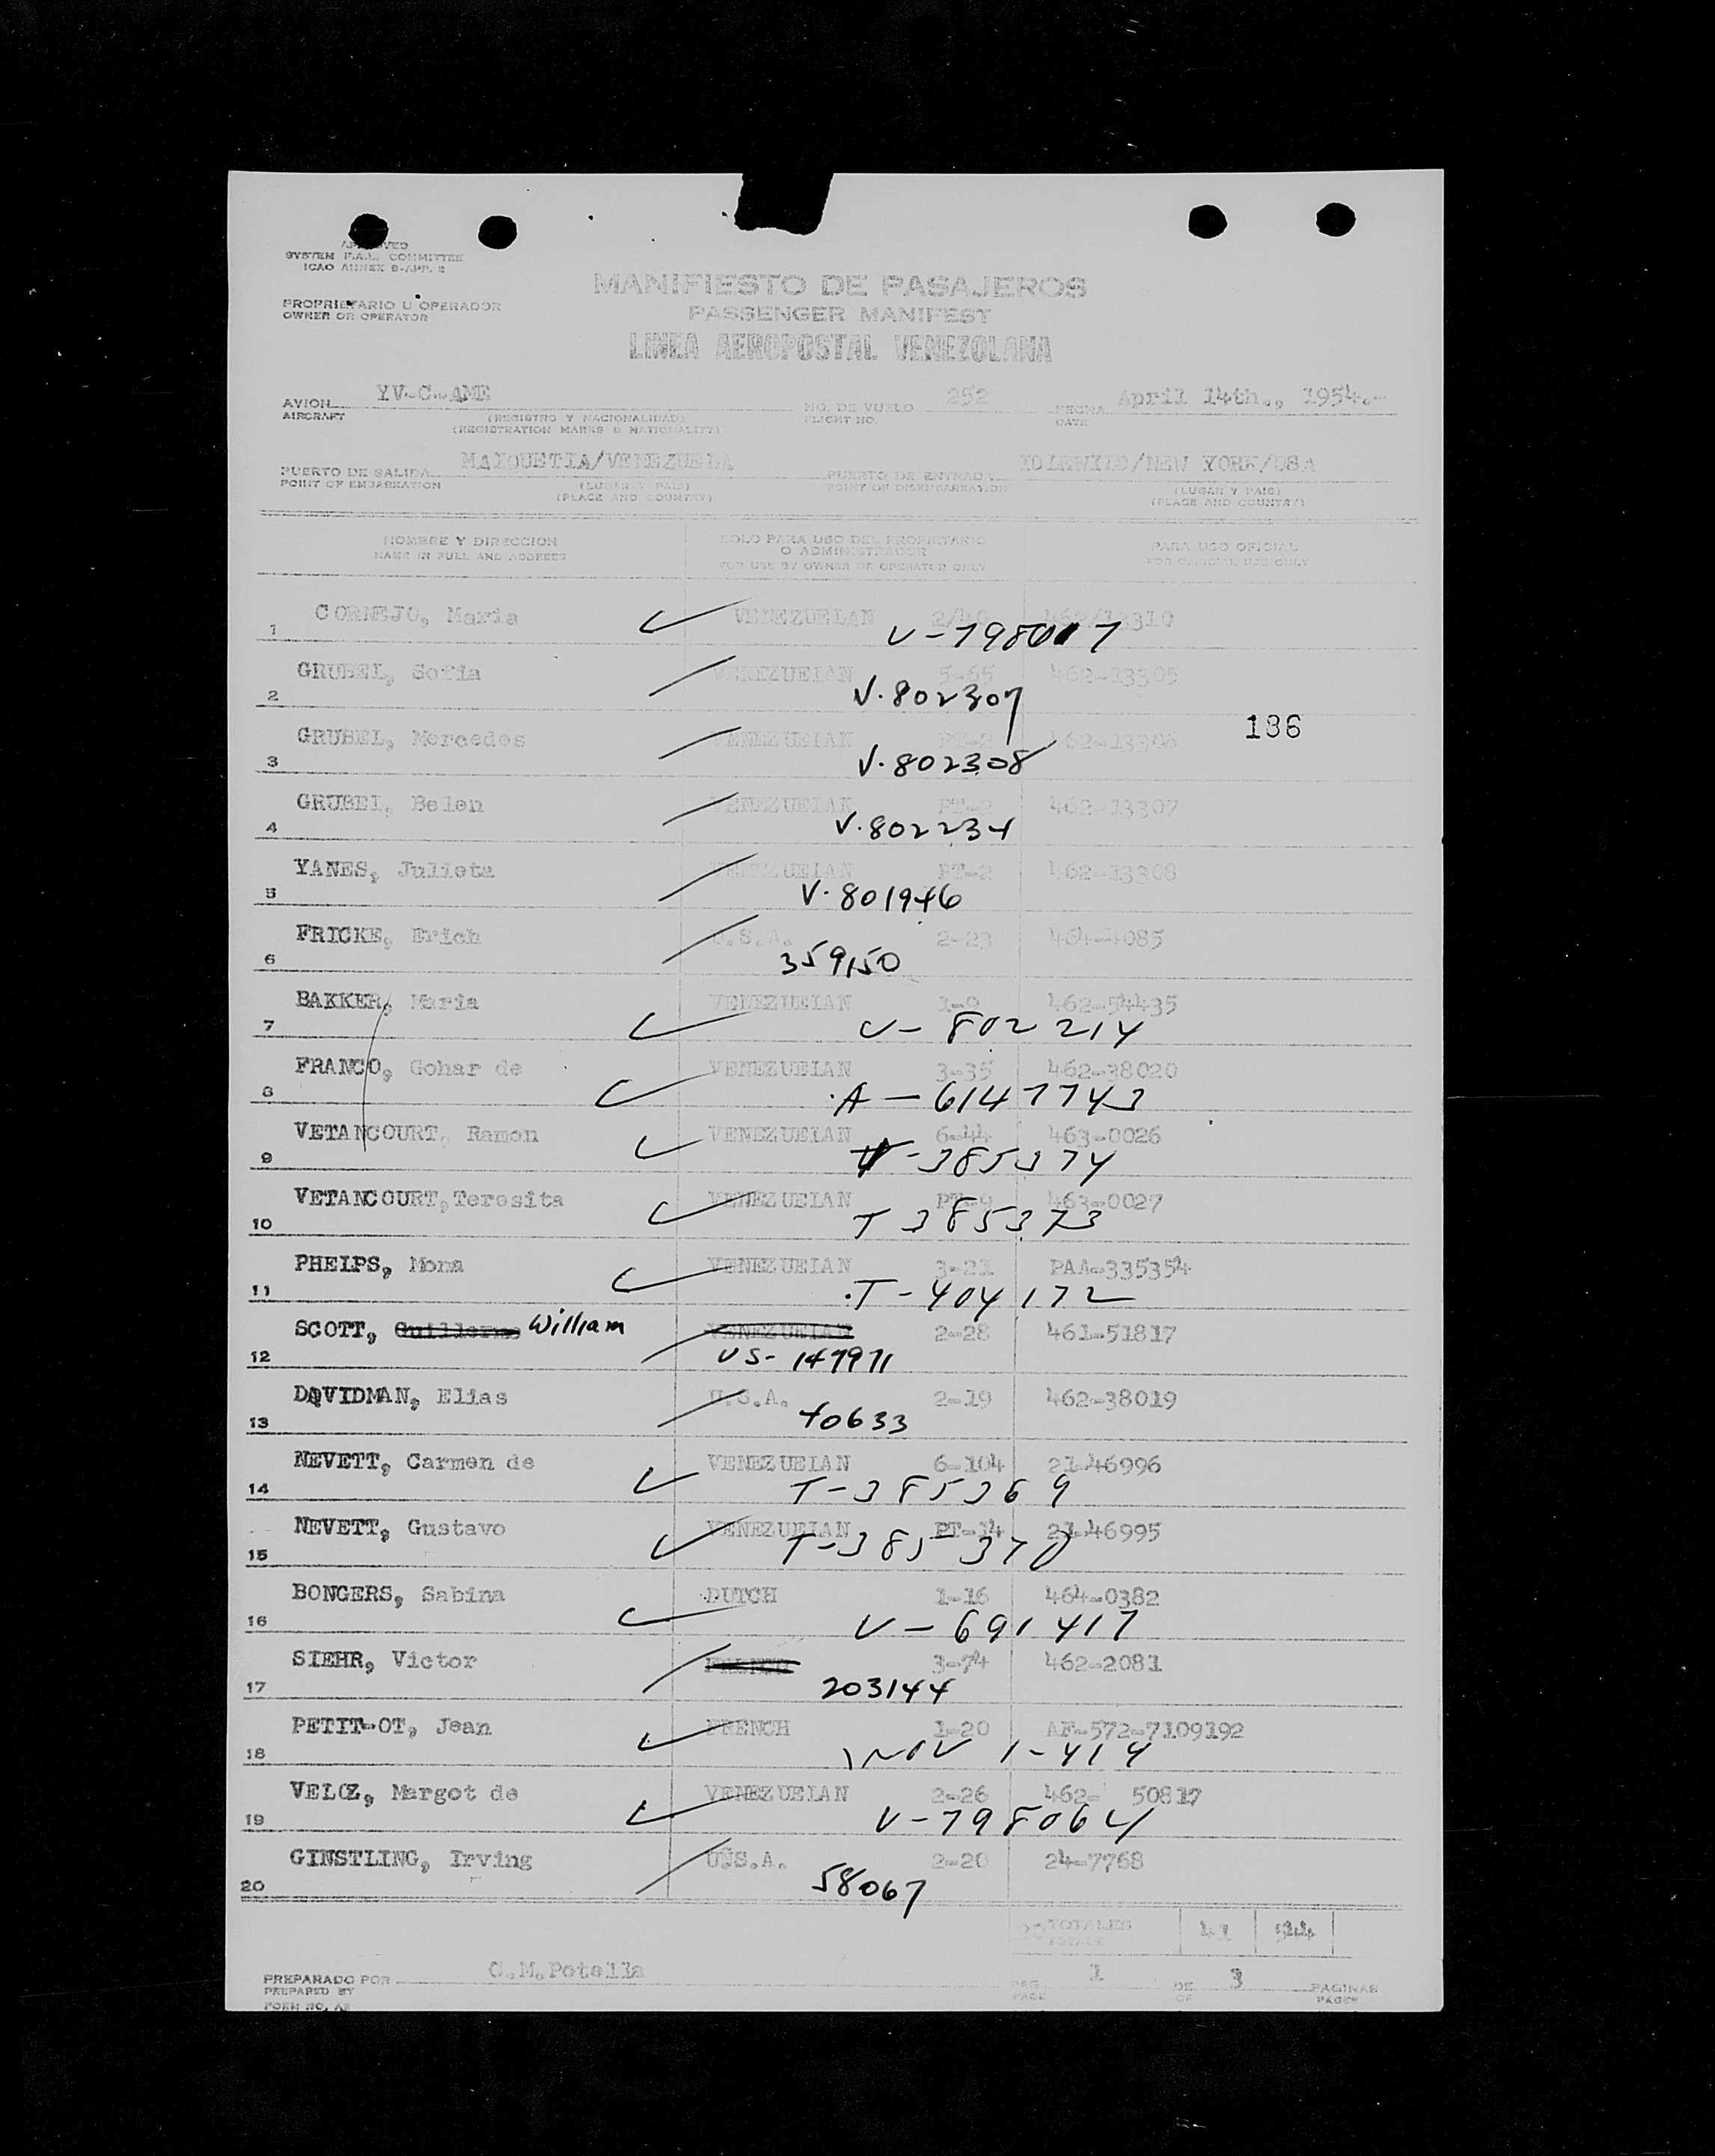 APPROVED
SYSTEM F.A.L. COMMITTEE
ICAO ANNEX 9-APP. 2
PROPRIETARIO U OPERADOR
OWNER OR OPERATOR
MANIFIESTO DE PASAJEROS
PASSENGER MANIFEST
LINEA AEROPOSTAL VENEZOLANA
AVION YV-C-AME NO. DE VUELO 252 FECHA April 14th., 1954.-
AIRCRAFT (REGISTRO Y NACIONALIDAD) FLIGHT NO. DATE
(REGISTRATION MARKS & NATIONALITY)
PUERTO DE SALIDA MAIQUETIA/VENEZUELA PUERTO DE ENTRADA IDLEWILD/NEW YORK/USA
POINT OF EMBARKATION (LUGAR Y PAIS) POINT OF DISEMBARKATION (LUGAR Y PAIS)
(PLACE AND COUNTRY) (PLACE AND COUNTRY)
NOMBRE Y DIRECCION SOLO PARA USO DEL PROPIETARIO PARA USO OFICIAL
NAME IN FULL AND ADDRESS O ADMINISTRADOR FOR OFFICIAL USE ONLY
FOR USE BY OWNER OR OPERATOR ONLY
CORNEJO, Maria VENEZUELAN 2/40 462/13310
1 V-798017
GRUBEL, Sofia VENEZUELAN 5-65 462-13305
2 V.802307
186
GRUBEL, Mercedes VENEZUELAN PT-2 462-13306
3 V.802308
GRUBEL, Belen VENEZUELAN PT-2 462-13307
4 V.802234
YANES, Julieta VENEZUELAN PT-2 462-13308
5 V.801946
FRICKE, Erich U.S.A. 2-23 464-4085
6 359150
BAKKER, Maria VENEZUELAN 1-9 462-54435
7 V-802214
FRANCO, Gohar de VENEZUELAN 3-35 462-38020
8 A-6147743
VETANCOURT, Ramon VENEZUELAN 6-44 463-0026
9 -385374
VETANCOURT, Teresita VENEZUELAN PT-9 463-0027
10 T 385373
PHELPS, Mona VENEZUELAN 3-21 PAA-335354
11 T-404172
SCOTT, Guillermo William VENEZUELAN 2-28 461-51817
12 US-147971
DAVIDMAN, Elias U.S.A. 2-19 462-38019
13 40633
NEVETT, Carmen de VENEZUELAN 6-104 21-46996
14 T-385369
NEVETT, Gustavo VENEZUELAN PT-14 21-46995
15 T-385370
BONGERS, Sabina DUTCH 1-16 464-0382
16 V-691417
SIEHR, Victor 3-74 462-2081
17 203144
PETIT-OT, Jean FRENCH 1-20 AF-572-7109192
18 1-414
VELOZ, Margot de VENEZUELAN 2-26 462- 50817
19 V-798064
GINSTLING, Irving U.S.A. 2-20 24-7768
20 58067
TOTALES 41 544
TOTALS
PREPARADO POR C.M.Potella PAG. 1 DE 3 PAGINAS
PREPARED BY PAGE OF PAGES
FORM NO. A2